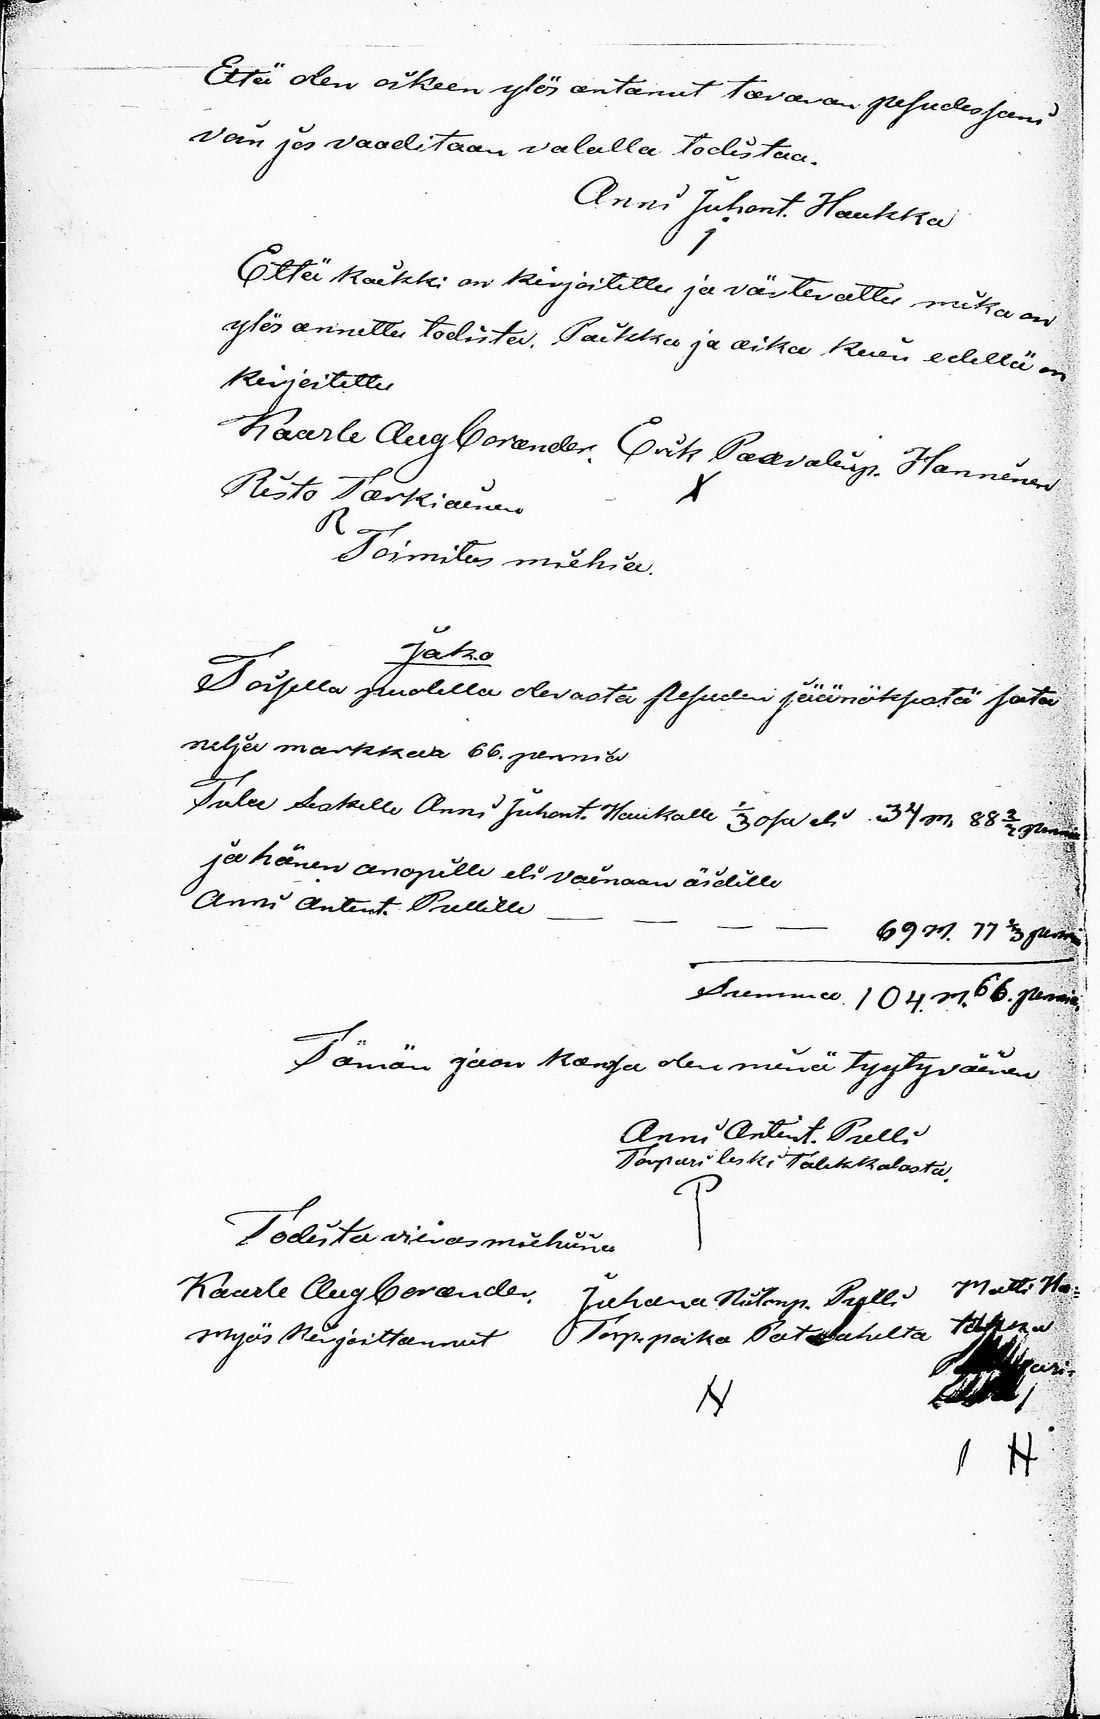 Että olen oikeen ylös antanut tavaran pesudessani
van jos vaaditaan valalla todistaa.
Anni Juhont. Haukka
Että kaikki on kirjoitettu ja värtevattu mika on
ylös annettu todista. Paikka ja aika kuin edellä on
kirjoitettu
Kaarle Aug Corander. Erik Paavalinp. Hannunen
X
Risto Tarkiainen
R
Toimitus miehia.
Jako
Toisella puolella olevasta Pesuden jäänöksestä sata
neljä markkaa 66. penniä
Tulee Leskelle Anni Juhont. Haukalle 1/3 osa eli 34 m. 88 2/3 penniä
ja hänen anopille eli vainaan äidille
Anni Antint. Prellille — — — — 69 m. 77 1/3 penniä
Summa 104. m. 66. penniä.
Tämän jaon kansa olen minä tyytyväinen
Anni Antint. Prelli
Torpari leski Talikkalasta.
P
Todista vieras miehinä
Kaarle Aug Corander. Juhana Risto​np. Prylli Matti Ha=
Myös Kirjoittannut Torp. poika Patalahelta
H
H